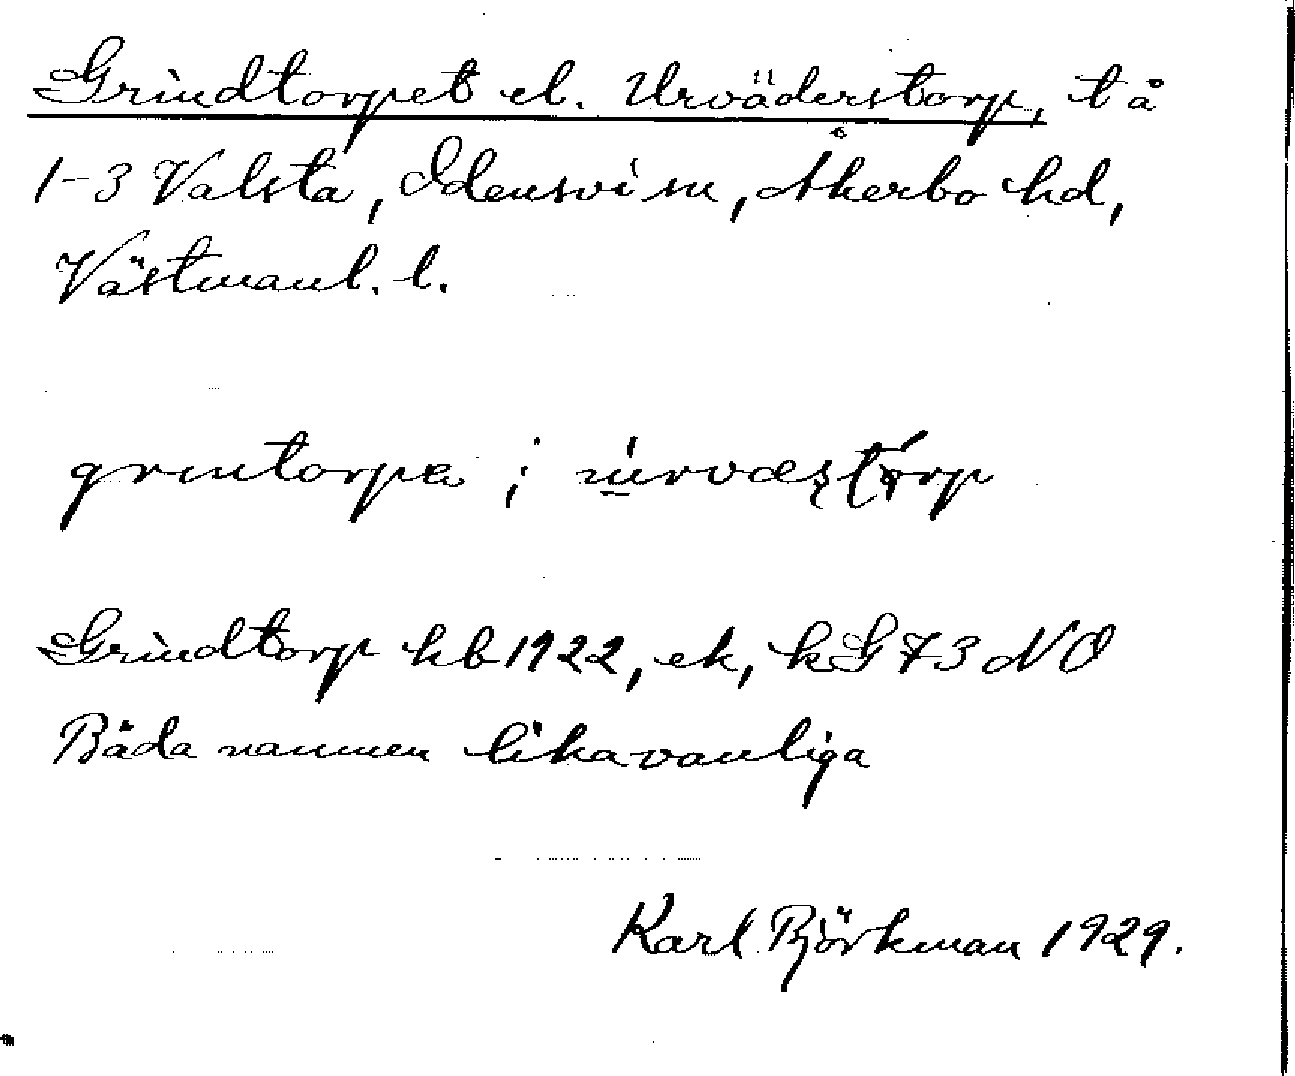 Grindtorpet el. Urväderstorp, t å
1-3 Valsta, Odensvi sn, Åkerbo hd,
Västmanl. l.
grintorpa ; urvæstorp
Grindtorp kb 1922, ek, kG 73 NO
Båda namnen lika vanliga
Karl Björkman 1929.